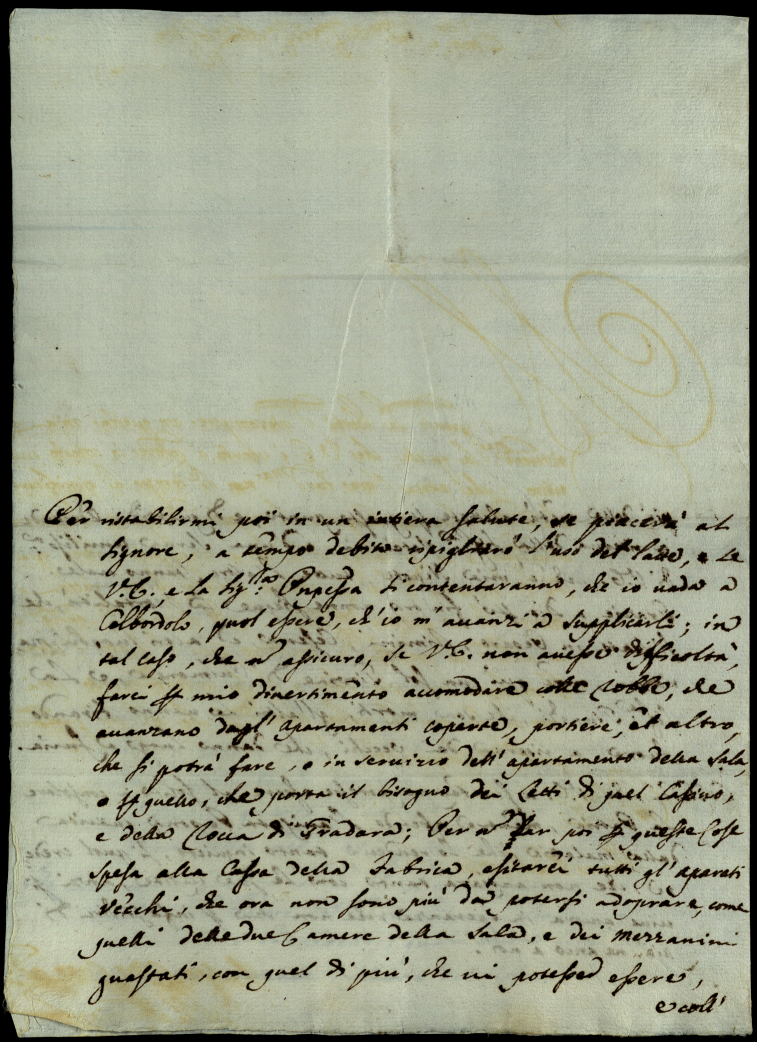 Per ristabilirmi poi in un intiera salute, se piacerà al
Signore, a tempo debito ripigliarò l'uso del latte, e se
V.E. e la Sig.ra Contessa si contentaranno, che io vada a
Colbordolo, puol essere, ch'io m'avanzi a supplicarli; in
tal caso, che n' assicuro, se V.E. non avesse difficoltà,
farei p mio divertimento accomodare colle robbe, che
avanzano dagl'apartamenti coperte, portiere, et altro,
che si potrà fare, o in servizio dell'apartamento della sala,
o p quello, che porta il bisogno dei letti di quel Casino,
e della Rocca di Gradara; Per n far poi p queste cose
spesa alla Cassa della Fabrica, esitarei tutti gl'aparati
vecchi, che ora non sono più da potersi adoprare, come
quelli delle due Camere della sala, e dei mezzanini
guastati, con quel di più, che vi potesse essere,
e coll'